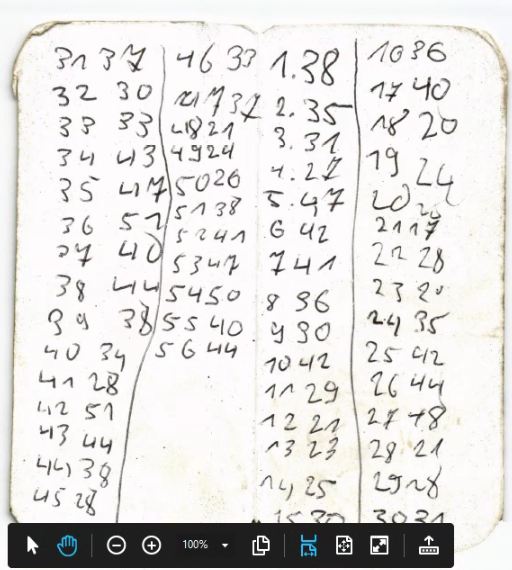 31 37
32 30
33 33
34 43
35 47
36 51
37 40
38 44
39 38
40 34
41 28
42 51
43 44
44 38
45 28
46 33
47 37
48 21
49 24
50 26
51 38
52 41
53 47
54 50
55 40
56 44
1.38
2.35
3.31
4.27
5.47
6 42
7 41
8 36
9 30
10 42
11 29
12 21
13 23
14 25
15 30
16 36
17 40
18 20
19 24
20
21 17
22 28
23 20
24 35
25 42
26 44
27 48
28 21
29 28
30 31
100%